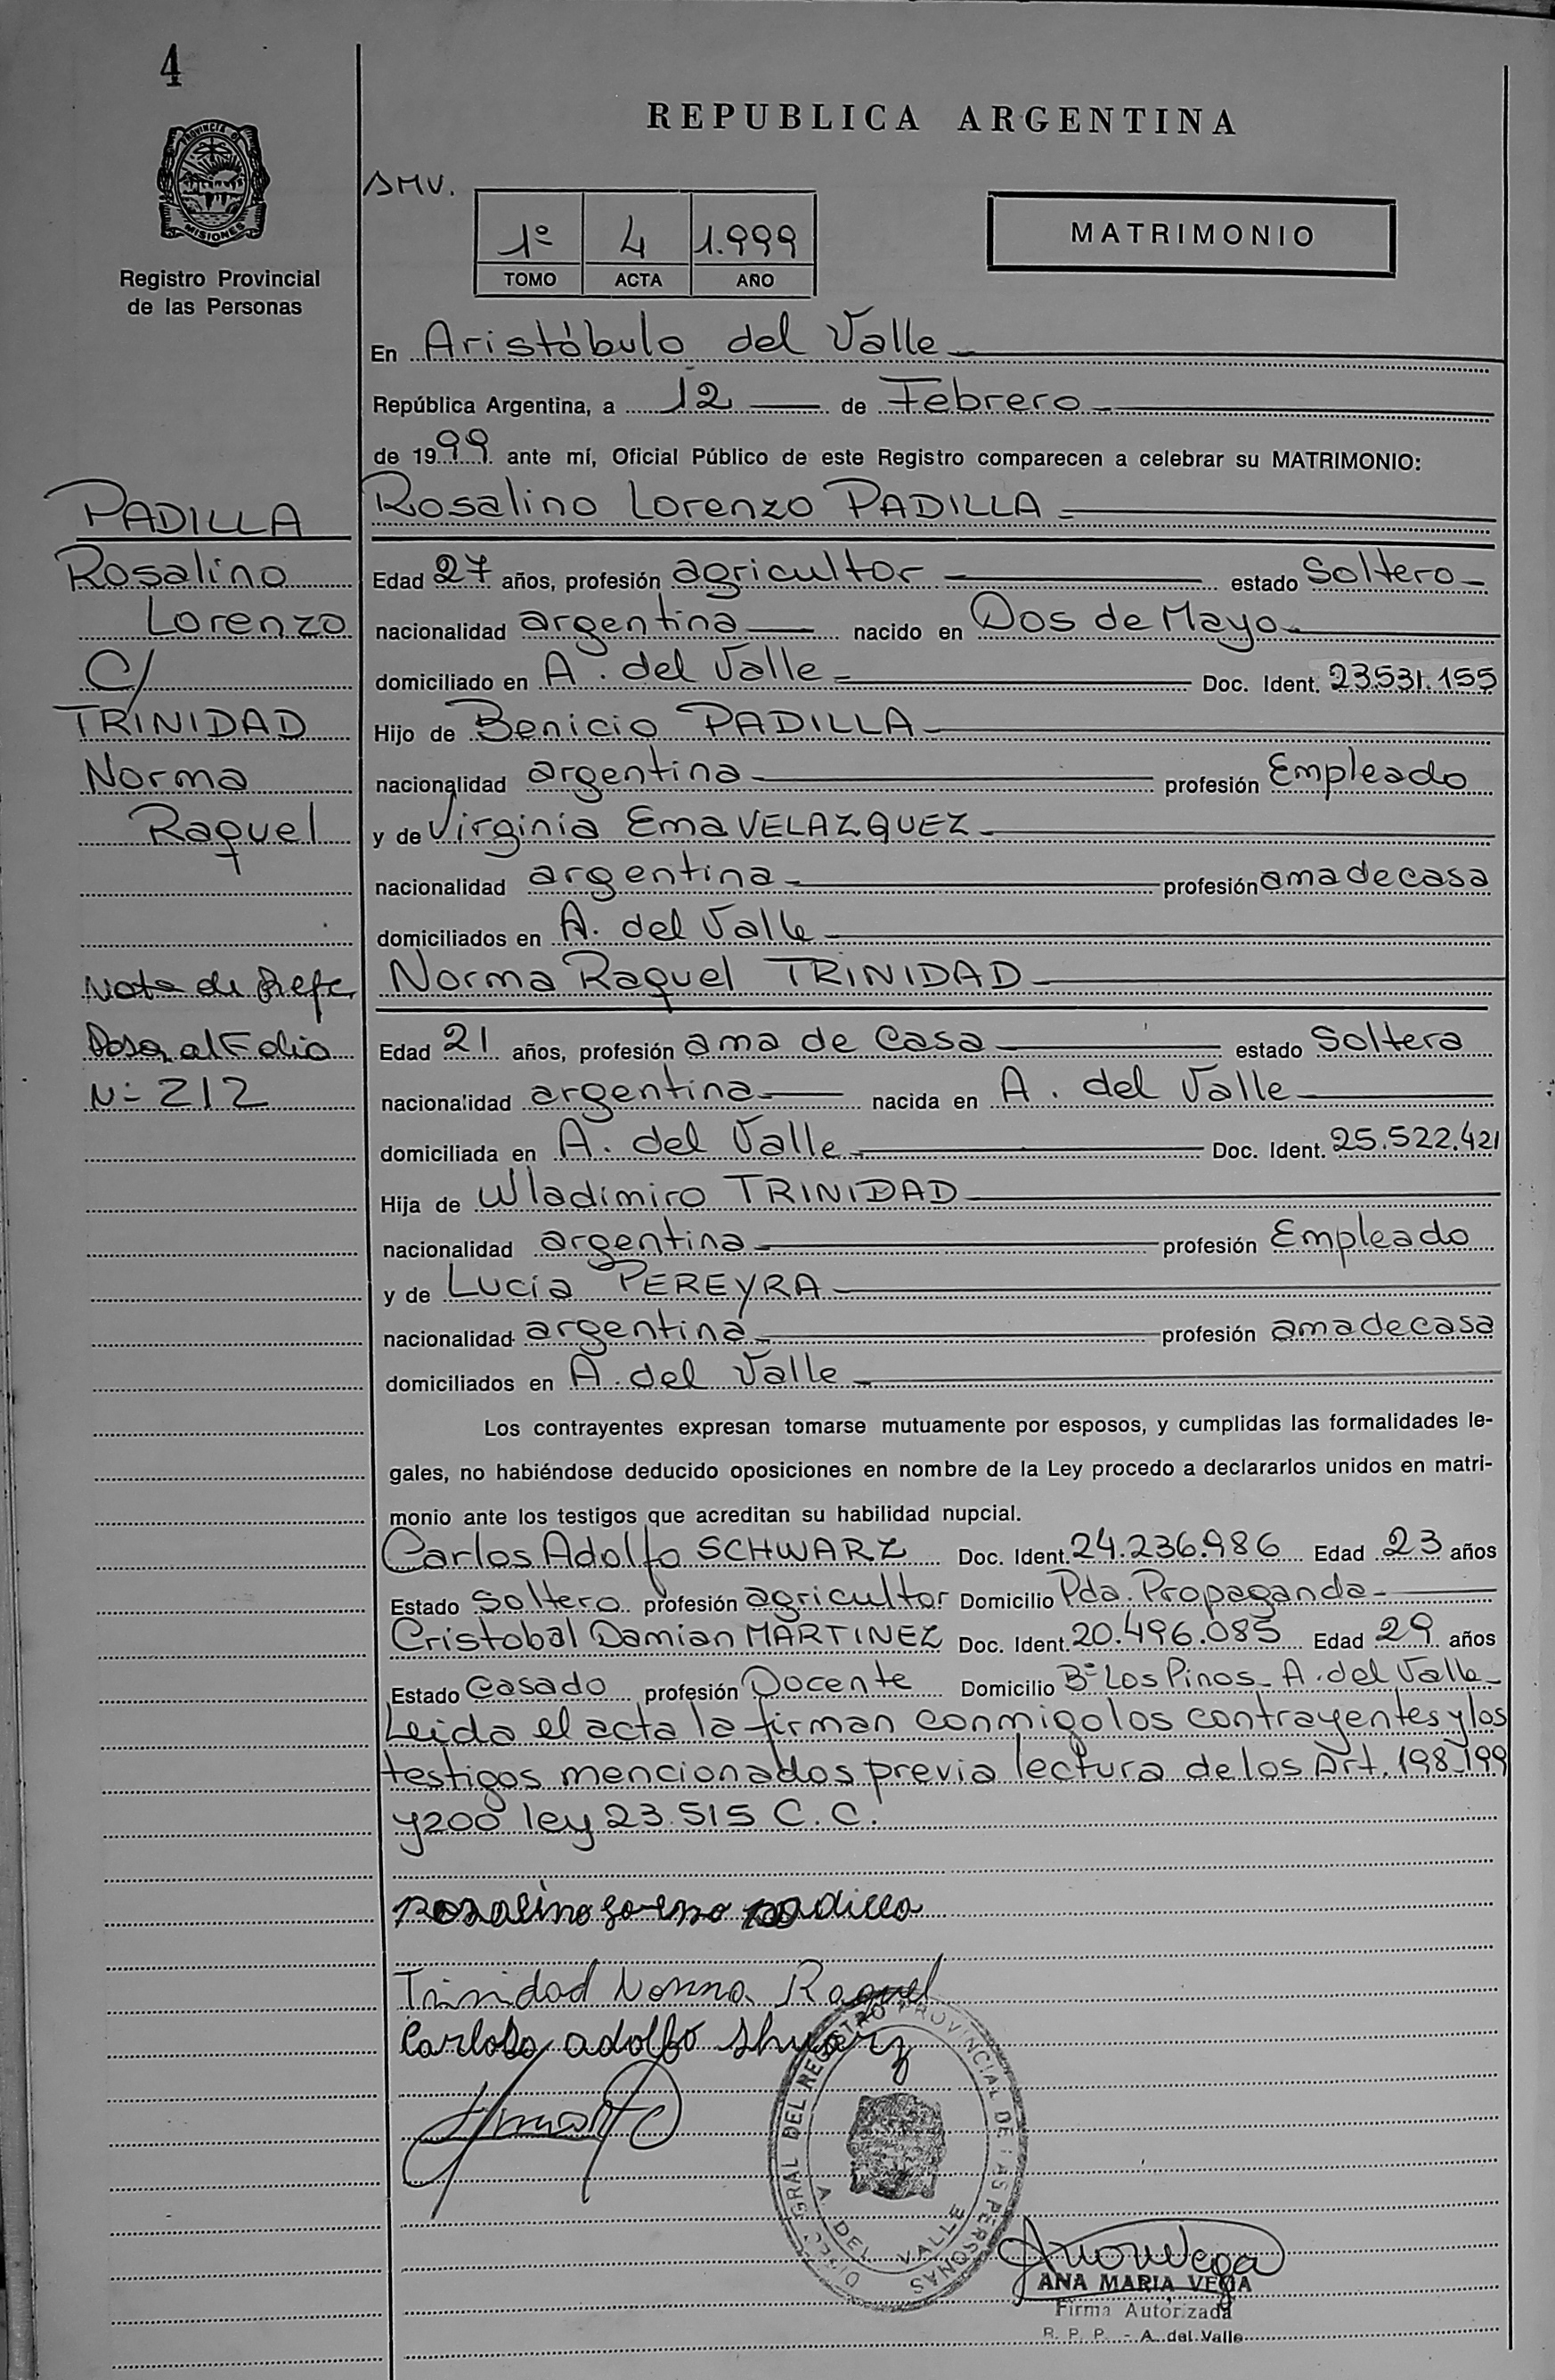 4
REPUBLICA ARGENTINA
PROVINCIA DE
MISIONES
Registro Provincial
de las Personas
1º 4 1.999
TOMO ACTA AÑO
MATRIMONIO
En Aristóbulo del Valle
República Argentina, a 12 de Febrero
de 1999 ante mí, Oficial Público de este Registro comparecen a celebrar su MATRIMONIO:
PADILLA
Rosalino
Lorenzo
C/
TRINIDAD
Norma
Raquel
Nota de Refe.
Pasa al Folio
Nº 212
Rosalino Lorenzo PADILLA
Edad 27 años, profesión agricultor estado Soltero
nacionalidad argentina nacido en Dos de Mayo
domiciliado en A. del Valle Doc. Ident. 23.531.155
Hijo de Benicio PADILLA
nacionalidad argentina profesión Empleado
y de Virginia Ema VELAZQUEZ
nacionalidad argentina profesión ama de casa
domiciliados en A. del Valle
Norma Raquel TRINIDAD
Edad 21 años, profesión ama de Casa estado Soltera
nacionalidad argentina nacida en A. del Valle
domiciliada en A. del Valle Doc. Ident. 25.522.421
Hija de Wladimiro TRINIDAD
nacionalidad argentina profesión Empleado
y de Lucia PEREYRA
nacionalidad argentina profesión ama de casa
domiciliados en A. del Valle
Los contrayentes expresan tomarse mutuamente por esposos, y cumplidas las formalidades le-
gales, no habiéndose deducido oposiciones en nombre de la Ley procedo a declararlos unidos en matri-
monio ante los testigos que acreditan su habilidad nupcial.
Carlos Adolfo SCHWARZ Doc. Ident. 24.236.986 Edad 23 años
Estado Soltero profesión agricultor Domicilio Pda. Propaganda
Cristobal Damian MARTINEZ Doc. Ident. 20.496.085 Edad 29 años
Estado Casado profesión Docente Domicilio Bº Los Pinos - A. del Valle
Leida el acta la firman conmigo los contrayentes y los
testigos mencionados previa lectura de los Art. 198-199
y 200 ley 23.515 C.C.
Trinidad Norma Raquel
adolfo
DEL REGISTRO PROVINCIAL DE LAS PERSONAS
A. DEL VALLE
ANA MARIA VEGA
Firma Autorizada
R. P. P. - A. del Valle